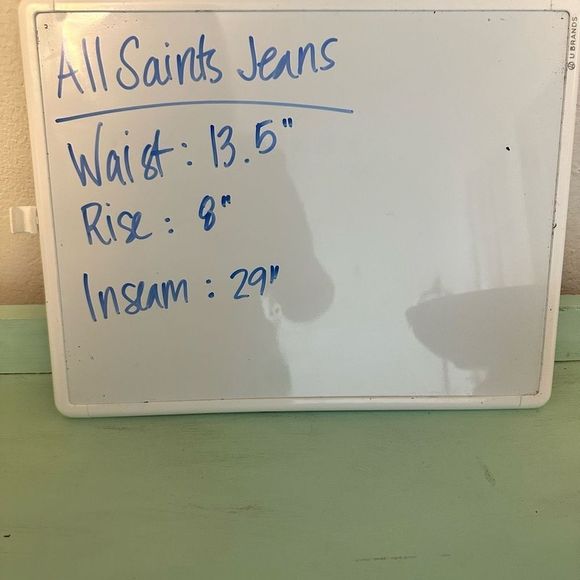 All Saints Jeans
Waist: 13.5"
Rise: 8"
Inseam: 29"
U BRANDS